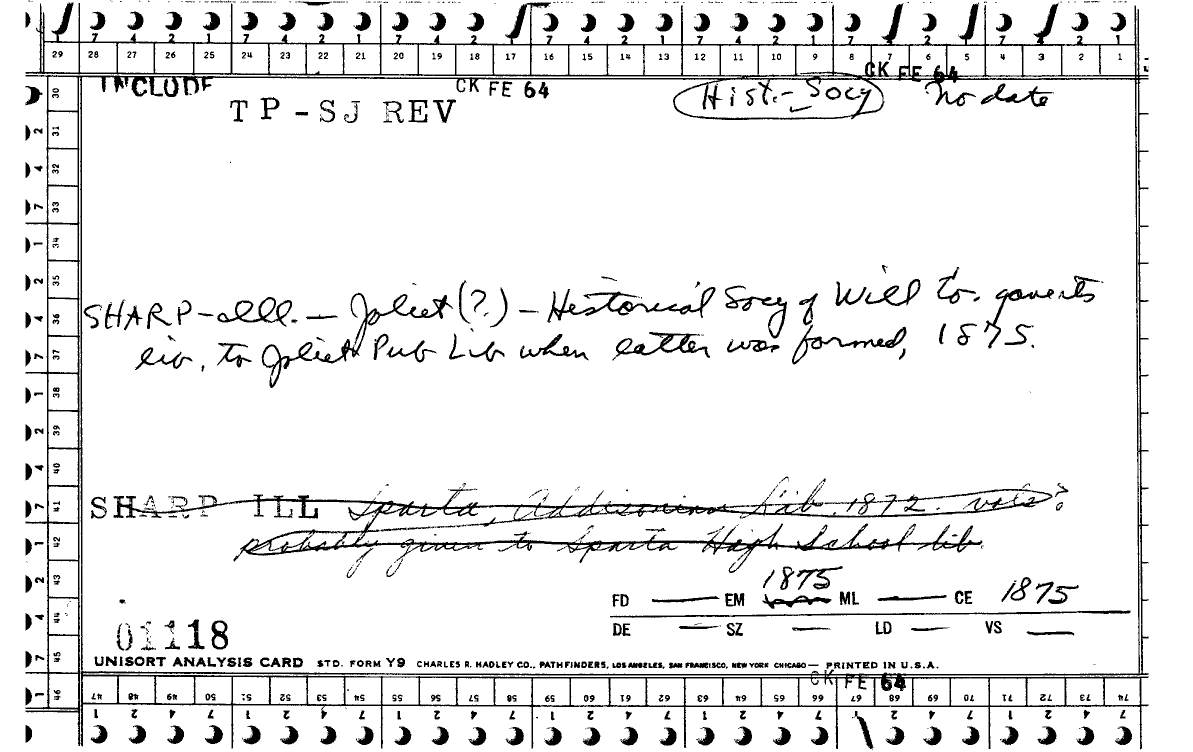 7 4 2 1 7 4 2 1 7 4 2 1 7 4 2 1 7 4 2 1 7 4 2 1 7 4 2 1
29 28 27 26 25 24 23 22 21 20 19 18 17 16 15 14 13 12 11 10 9 8 7 6 5 4 3 2 1
CK FE 64
INCLUDE CK FE 64 Hist.-Socy no date
TP-SJ REV
30
2 31
4 32
7 33
1 34
2 35
SHARP-Ill. — Joliet (?) – Historical Socy of Will Co. gave its
4 36
lib. to Joliet Pub Lib when latter was formed, 1875.
7 37
1 38
2 39
4 40
SHARP ILL Sparta, Addisonian Lib. 1872. vols?
7 41
probably given to Sparta High School lib.
1 42
2 43
1875
FD — EM ML — CE 1875
4 44
DE — SZ — LD — VS —
01118
7 45
UNISORT ANALYSIS CARD STD. FORM Y9 CHARLES R. HADLEY CO., PATHFINDERS, LOS ANGELES, SAN FRANCISCO, NEW YORK CHICAGO — PRINTED IN U.S.A.
CK FE 64
1 46
47 48 49 50 51 52 53 54 55 56 57 58 59 60 61 62 63 64 65 66 67 68 69 70 71 72 73 74
1 2 4 7 1 2 4 7 1 2 4 7 1 2 4 7 1 2 4 7 1 2 4 7 1 2 4 7